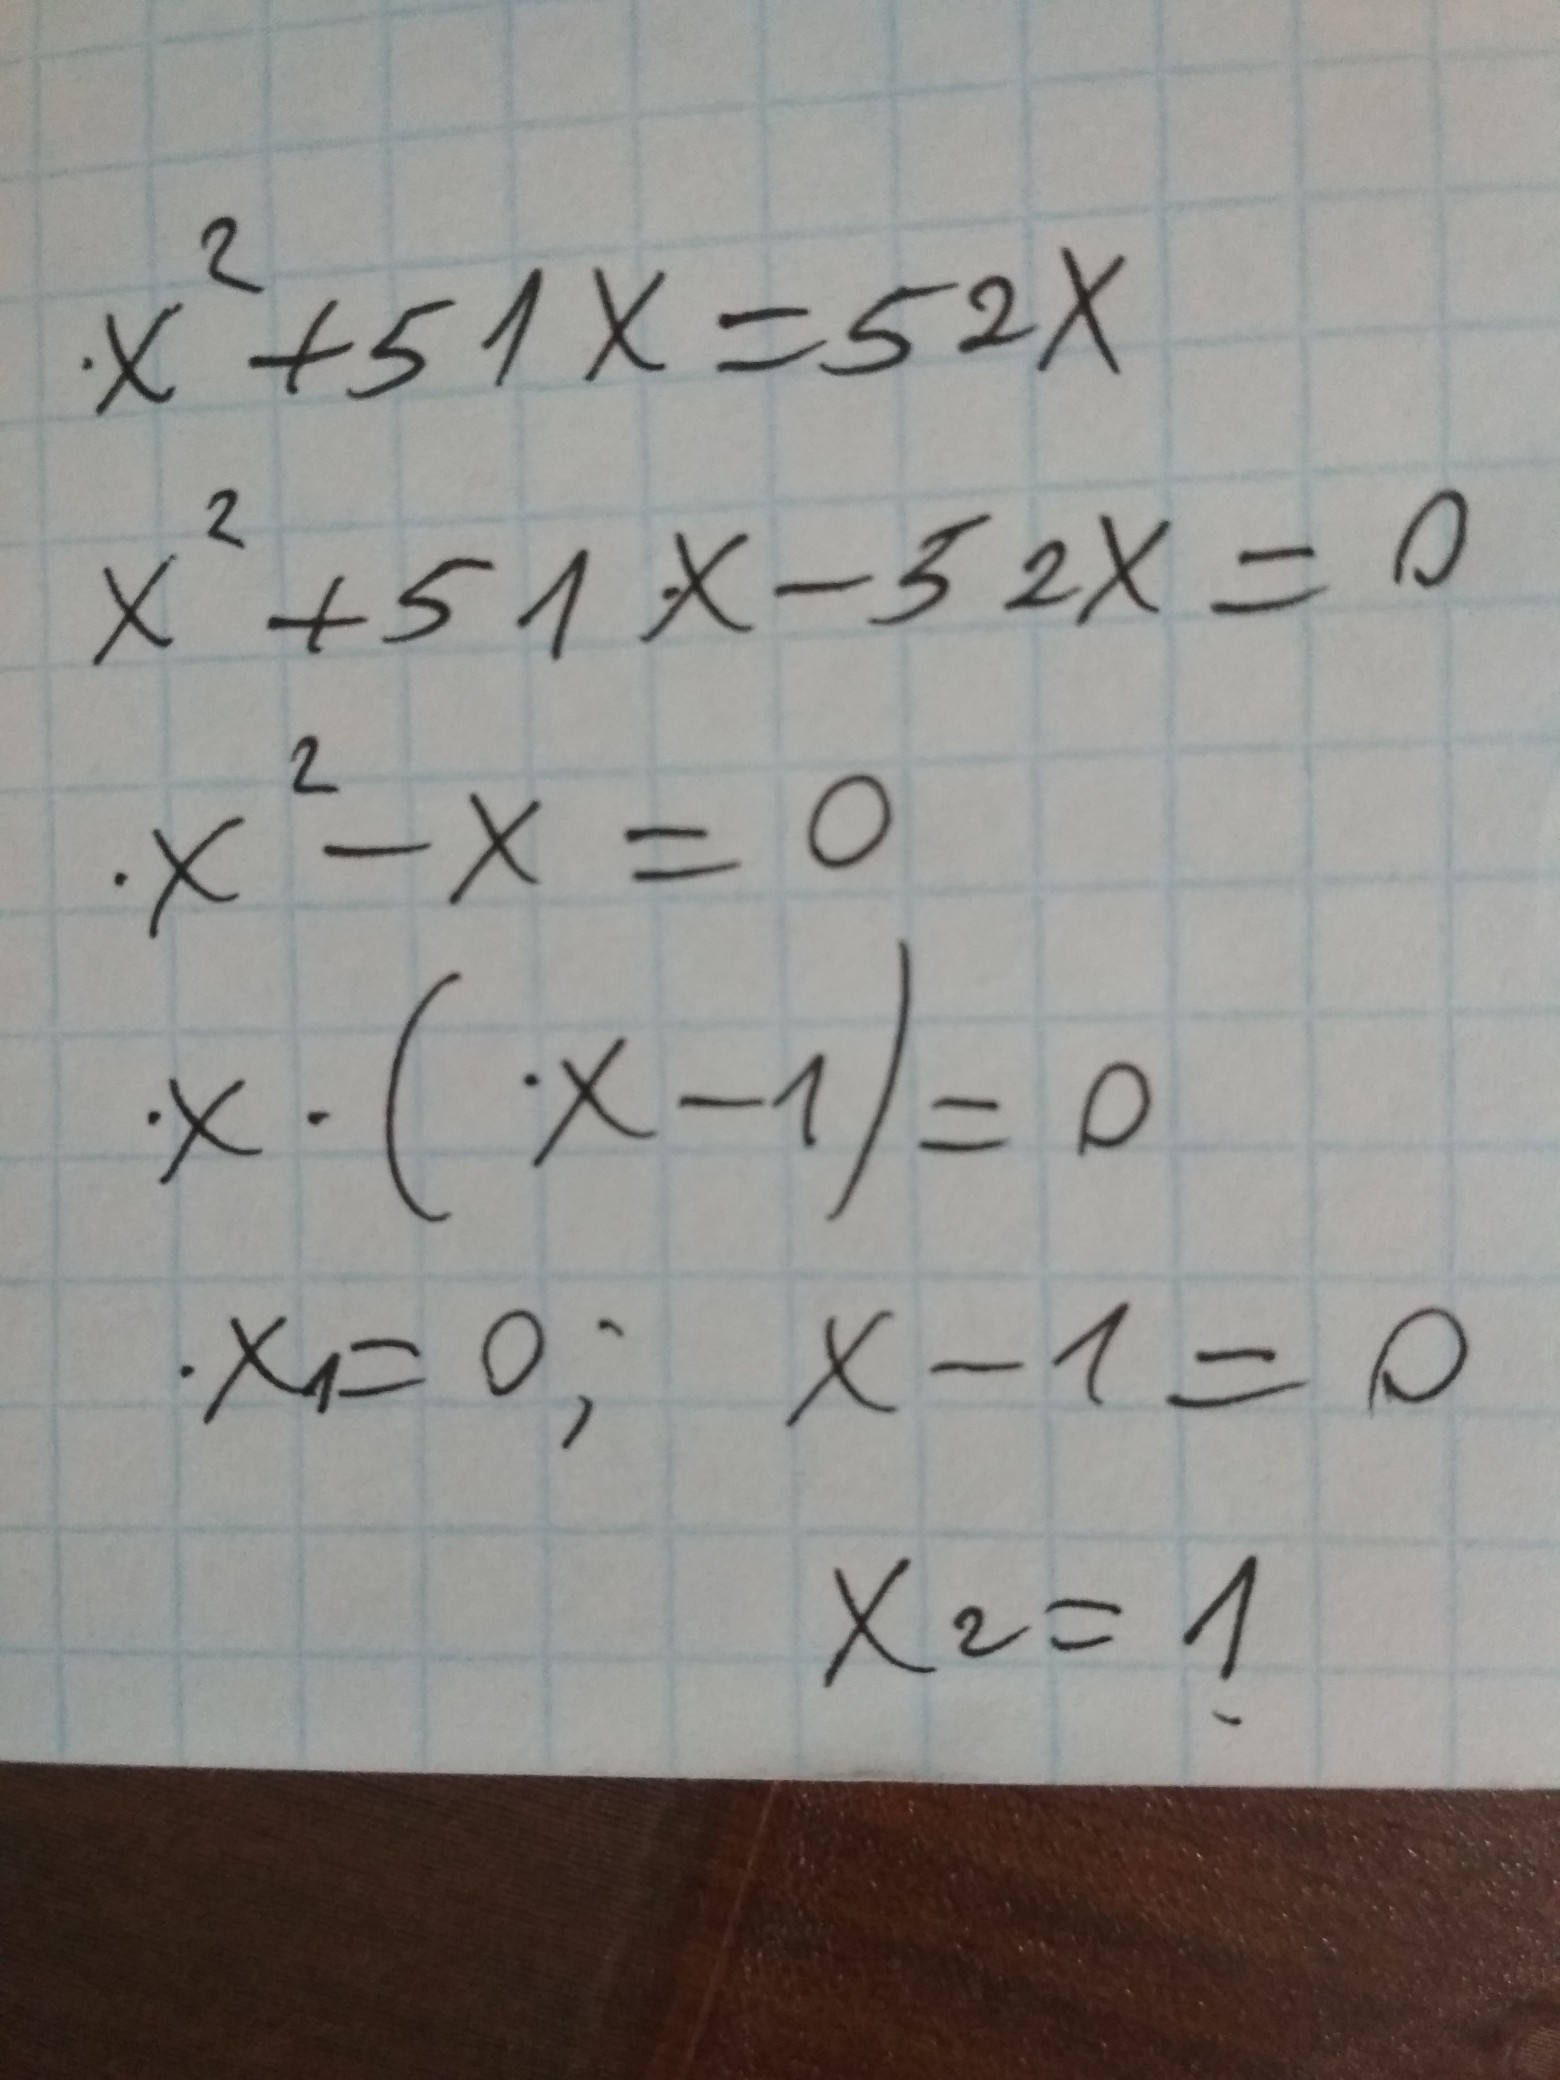 x² + 51x = 52x
x² + 51x - 52x = 0
x² - x = 0
x · (x - 1) = 0
x₁ = 0; x - 1 = 0
x₂ = 1